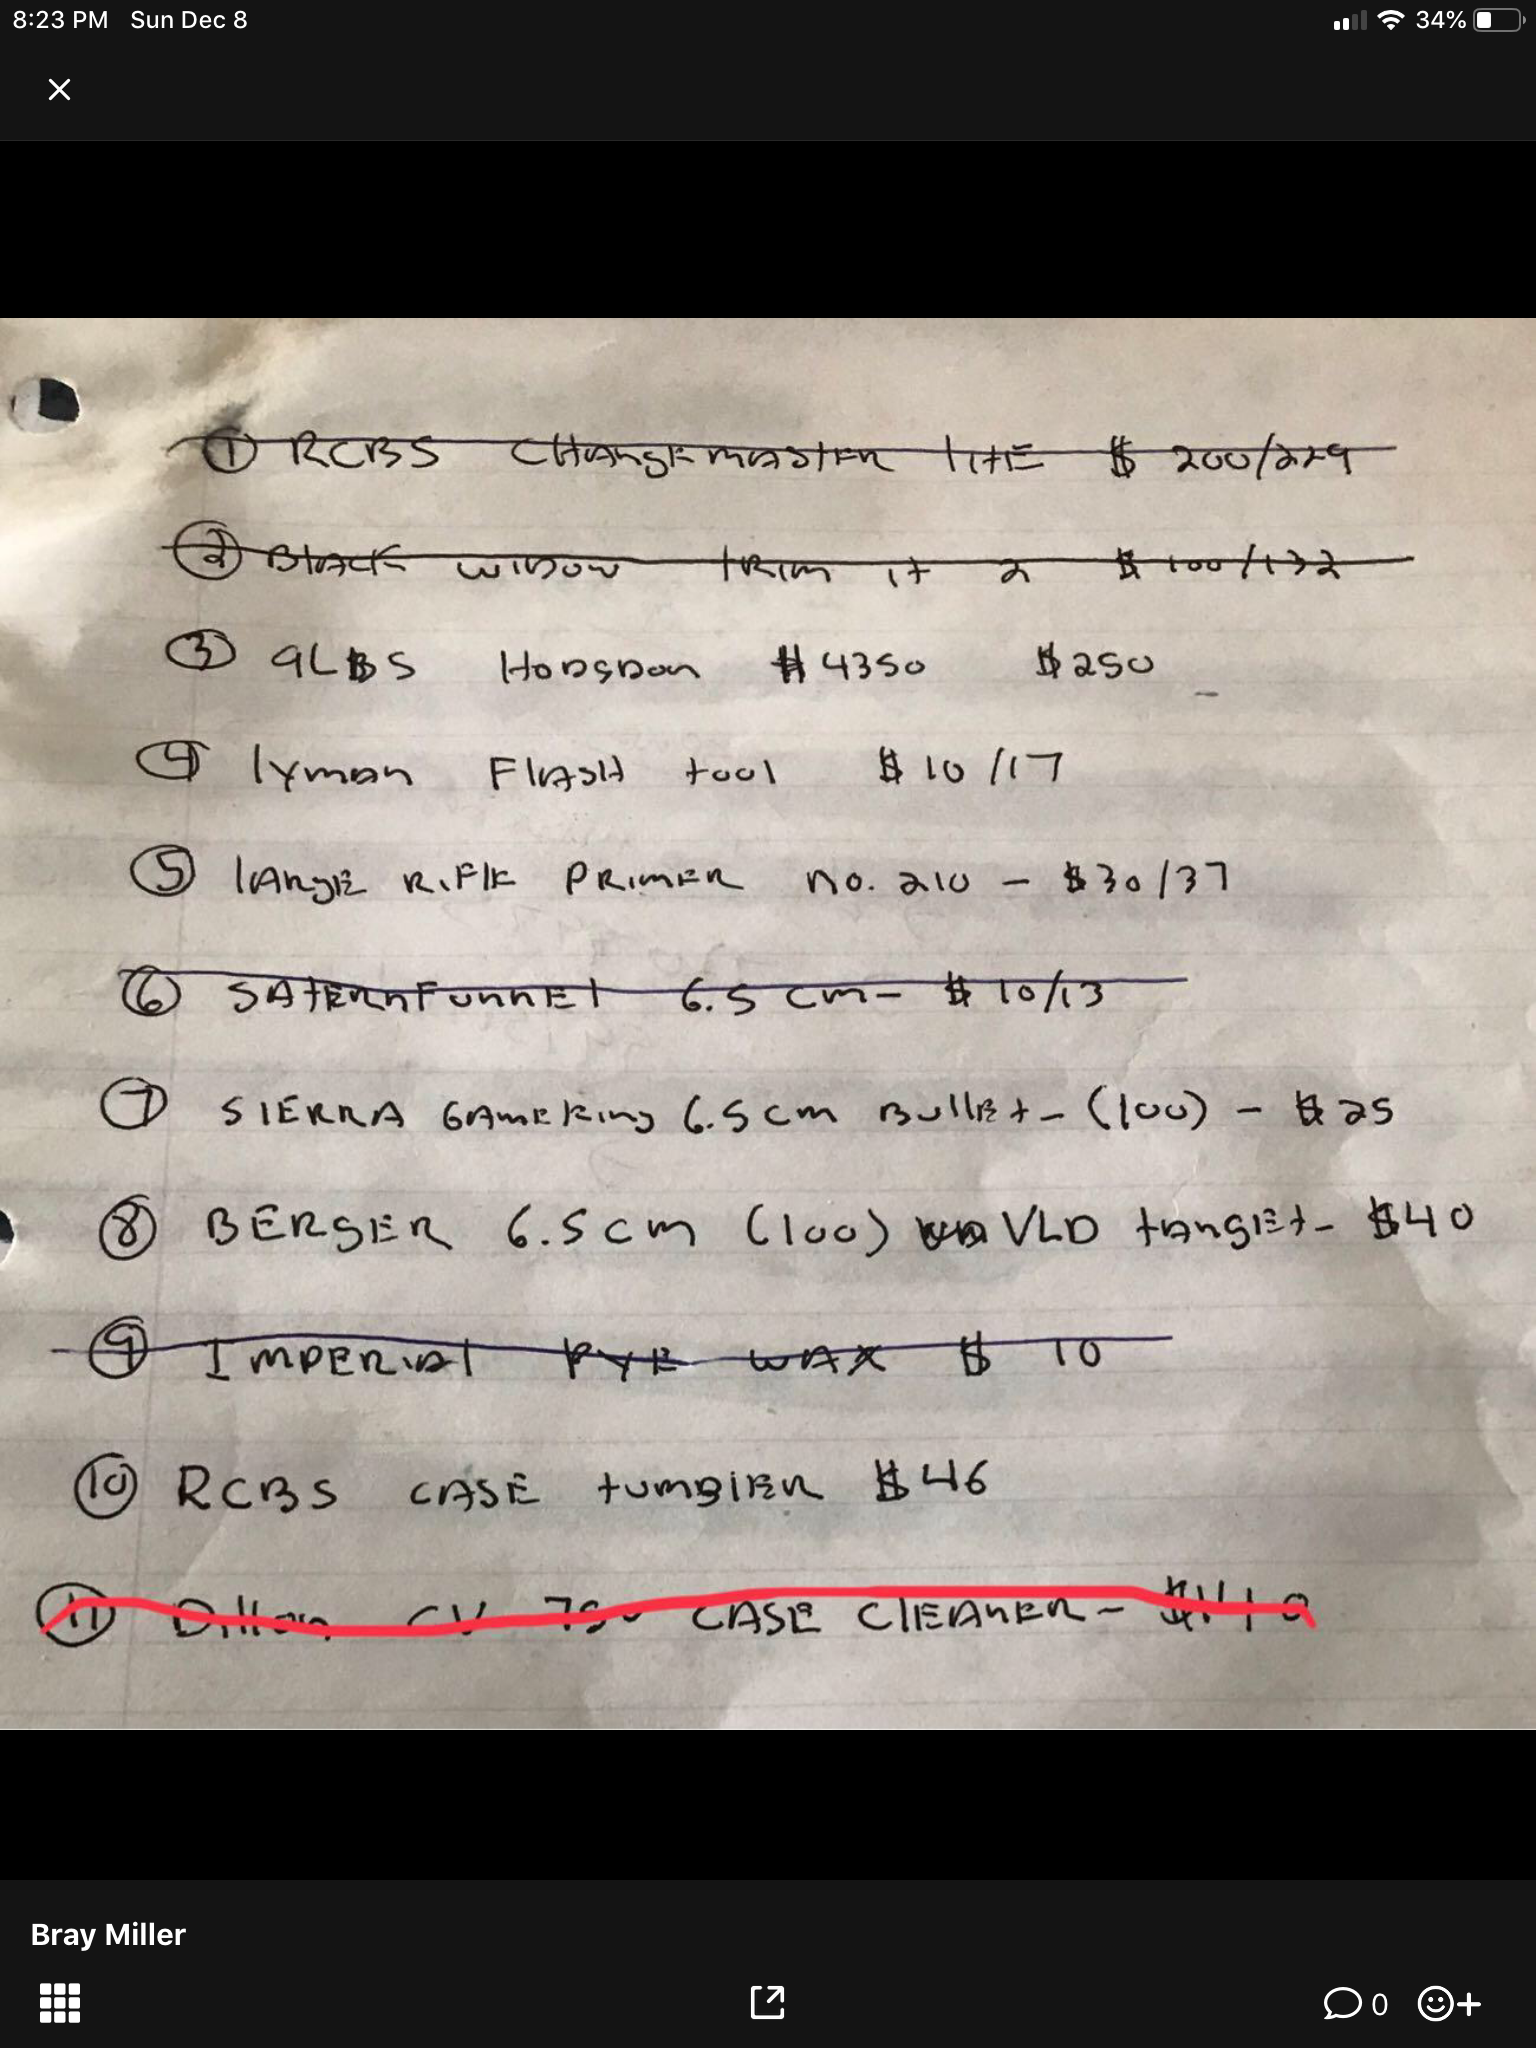 8:23 PM Sun Dec 8 34%
① RCBS CHARGEMASTER lITE $ 200/229
② BlACK WIDOW TRIM IT 2 $ 100/132
③ 9LBS HODGDON # 4350 $250
④ lyman FlASH tool $ 10/17
⑤ lARGE RIFlE PRIMER NO. 210 - $30/37
⑥ SATERN FUNNEl 6.5 cm - $ 10/13
⑦ SIERRA GAMEKING 6.5 cm BullEt - (100) - $ 25
⑧ BERGER 6.5 cm (100) VLD tARGEt - $40
⑨ IMPERIAl DYE WAX $ 10
⑩ RCBS CASE tUMBlER $46
⑪ Dillon CV 750 CASE ClEANER -
Bray Miller
0